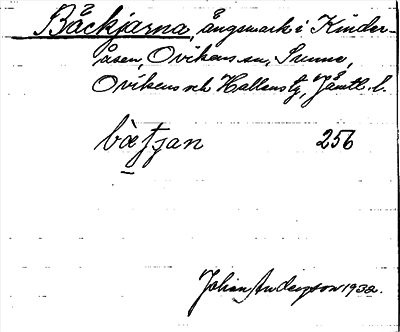 Bäckjarna, ängsmark i Kinder-
åsen, Ovikens sn, Sunne,
Ovikens och Hallens tg, Jämtl. l.
bœ̀tjan 256
Johan Anderson 1932.